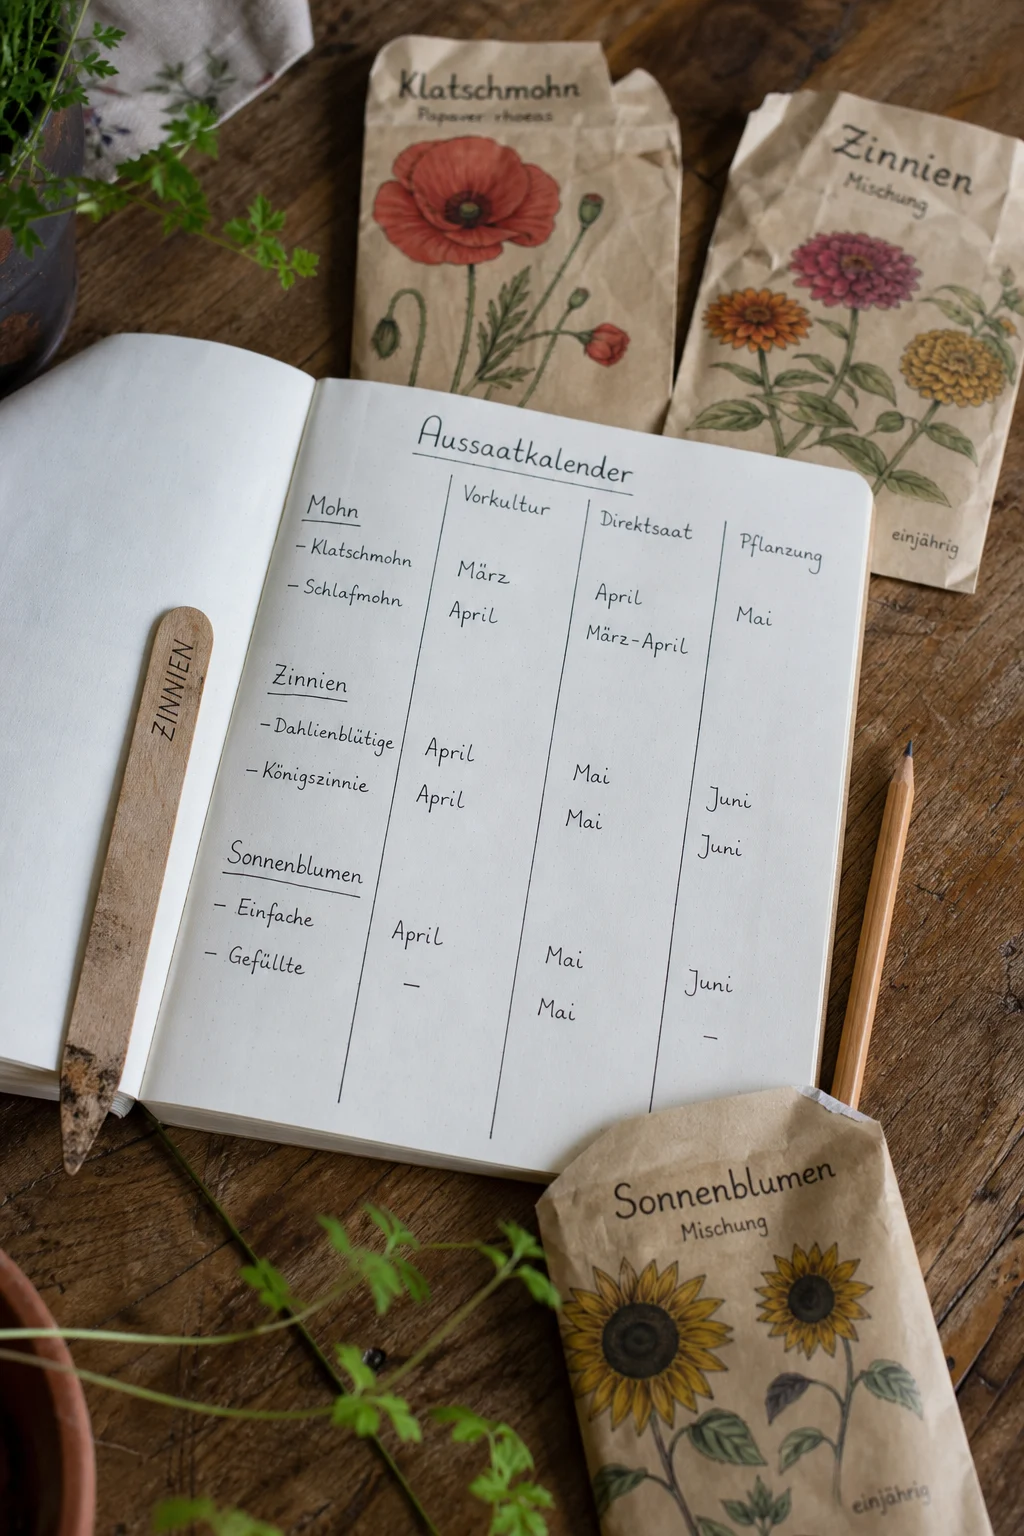 Klatschmohn
Papaver rhoeas
Zinnien
Mischung
einjährig
Aussaatkalender
Vorkultur Direktsaat Pflanzung
Mohn
– Klatschmohn März April Mai
– Schlafmohn April März-April
Zinnien
– Dahlienblütige April Mai Juni
– Königszinnie April Mai Juni
Sonnenblumen
– Einfache April Mai Juni
– Gefüllte – Mai –
ZINNIEN
Sonnenblumen
Mischung
einjährig